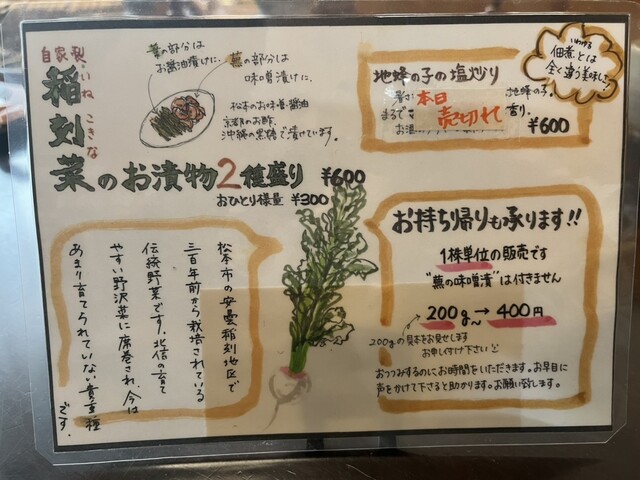 自家製
いね こきな
稲刻菜のお漬物2種盛り ¥600
おひとり様量 ¥300
葉の部分は
お醤油漬けに。
蕪の部分は
味噌漬けに。
松本のお味噌・醤油
京都のお酢、
沖縄の黒糖で漬けています。
地蜂の子の塩炒り
本日
売切れ
地蜂の子。
まるで
香り。
¥600
いわゆる
佃煮とは
全く違う美味しさ
松本市の安曇稲刻地区で
三百年前から栽培されている
伝統野菜です。北信の育て
やすい野沢菜に席巻され、今は
あまり育てられていない貴重種
です。
お持ち帰りも承ります!!
1株単位の販売です
"蕪の味噌漬"は付きません
200g〜→400円
200gの見本をお見せします
お申し付け下さい
おつつみするのにお時間をいただきます。お早目に
声をかけて下さると助かります。お願い致します。